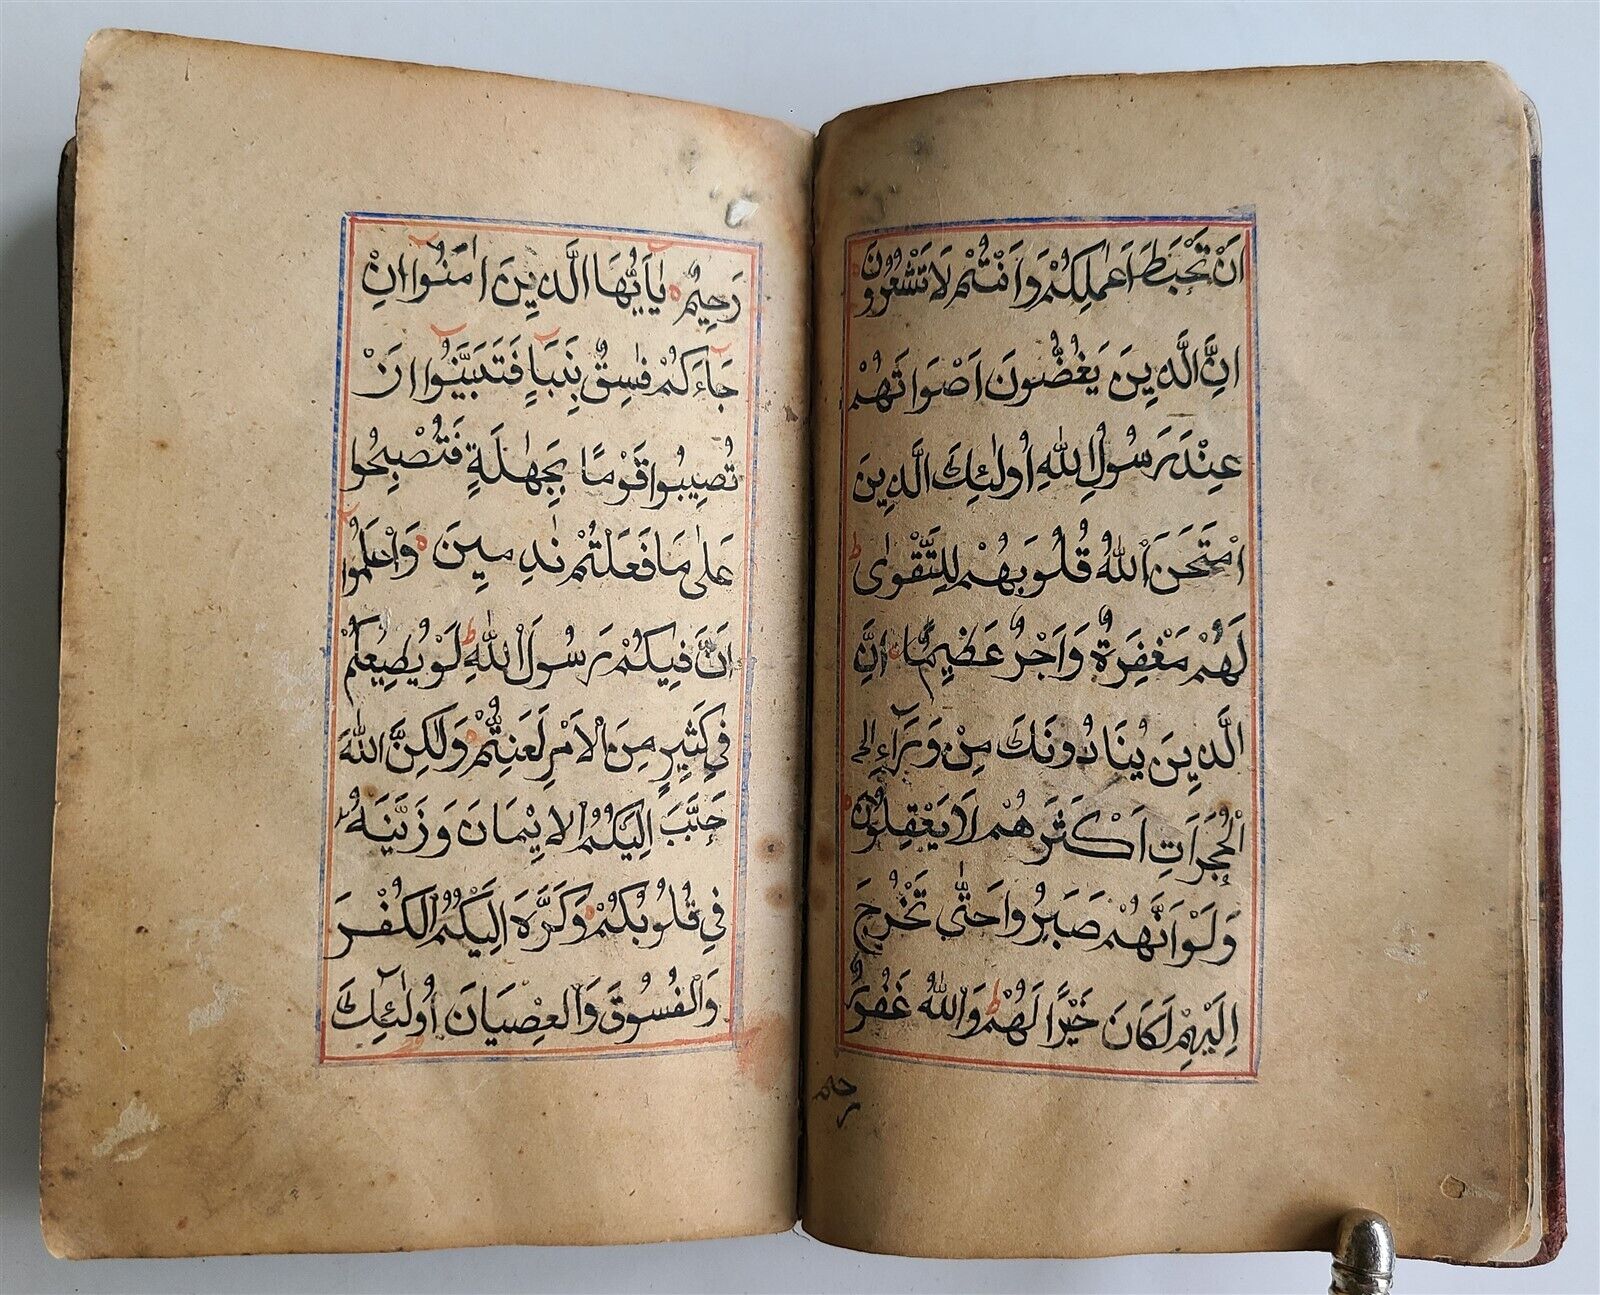 اَنْ تَحْبَطَ اَعْمٰلُكُمْ وَاَنْتُمْ لَا تَشْعُرُوْنَ
اِنَّ الَّذِيْنَ يَغُضُّوْنَ اَصْوَاتَهُمْ
عِنْدَ رَسُوْلِ اللّٰهِ اُولٰئِكَ الَّذِيْنَ
امْتَحَنَ اللّٰهُ قُلُوْبَهُمْ لِلتَّقْوٰى ط
لَهُمْ مَغْفِرَةٌ وَاَجْرٌ عَظِيْمٌ اِنَّ
الَّذِيْنَ يُنَادُوْنَكَ مِنْ وَرَآءِ الْح
الْحُجُرَاتِ اَكْثَرُهُمْ لَا يَعْقِلُوْنَ
وَلَوْ اَنَّهُمْ صَبَرُوْا حَتّٰى تَخْرُجَ
اِلَيْهِمْ لَكَانَ خَيْرًا لَهُمْ ط وَاللّٰهُ غَفُوْرٌ
رحيم
رَحِيْمٌ يٰاَيُّهَا الَّذِيْنَ اٰمَنُوْا اِنْ
جَآءَكُمْ فَاسِقٌ بِنَبَاٍ فَتَبَيَّنُوْا اَنْ
تُصِيْبُوْا قَوْمًا بِجَهٰلَةٍ فَتُصْبِحُوْا
عَلٰى مَا فَعَلْتُمْ نٰدِمِيْنَ وَاعْلَمُوْا
اَنَّ فِيْكُمْ رَسُوْلَ اللّٰهِ ط لَوْ يُطِيْعُكُمْ
فِيْ كَثِيْرٍ مِنَ الْاَمْرِ لَعَنِتُّمْ وَلٰكِنَّ اللّٰهَ
حَبَّبَ اِلَيْكُمُ الْاِيْمَانَ وَزَيَّنَهُ
فِيْ قُلُوْبِكُمْ وَكَرَّهَ اِلَيْكُمُ الْكُفْرَ
وَالْفُسُوْقَ وَالْعِصْيَانَ اُولٰئِكَ